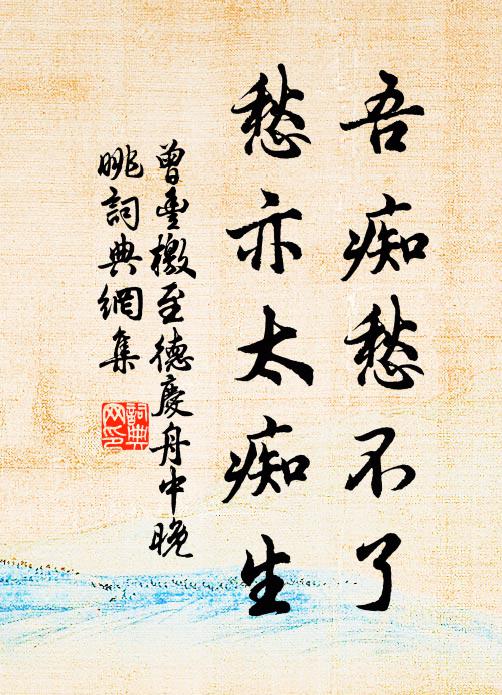 吾痴愁不了
愁亦太痴生
曾豐檄至德慶舟中晚
眺詞典網集
詞典
网印